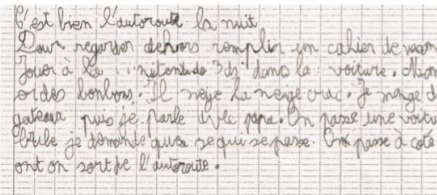 C'est bien l'autoroute la nuit
Pour regarder dehors remplir um cahier de vacan
Jouer à la nitendo 3ds dans la voiture. Mon
or des bonbons. Il neige la neige crac. Je mange d
gateaux puis je parle avec papa. On passe une voitur
brule je demande que se qui se passe. On passe à coté
ont on sort de l'autoroute.